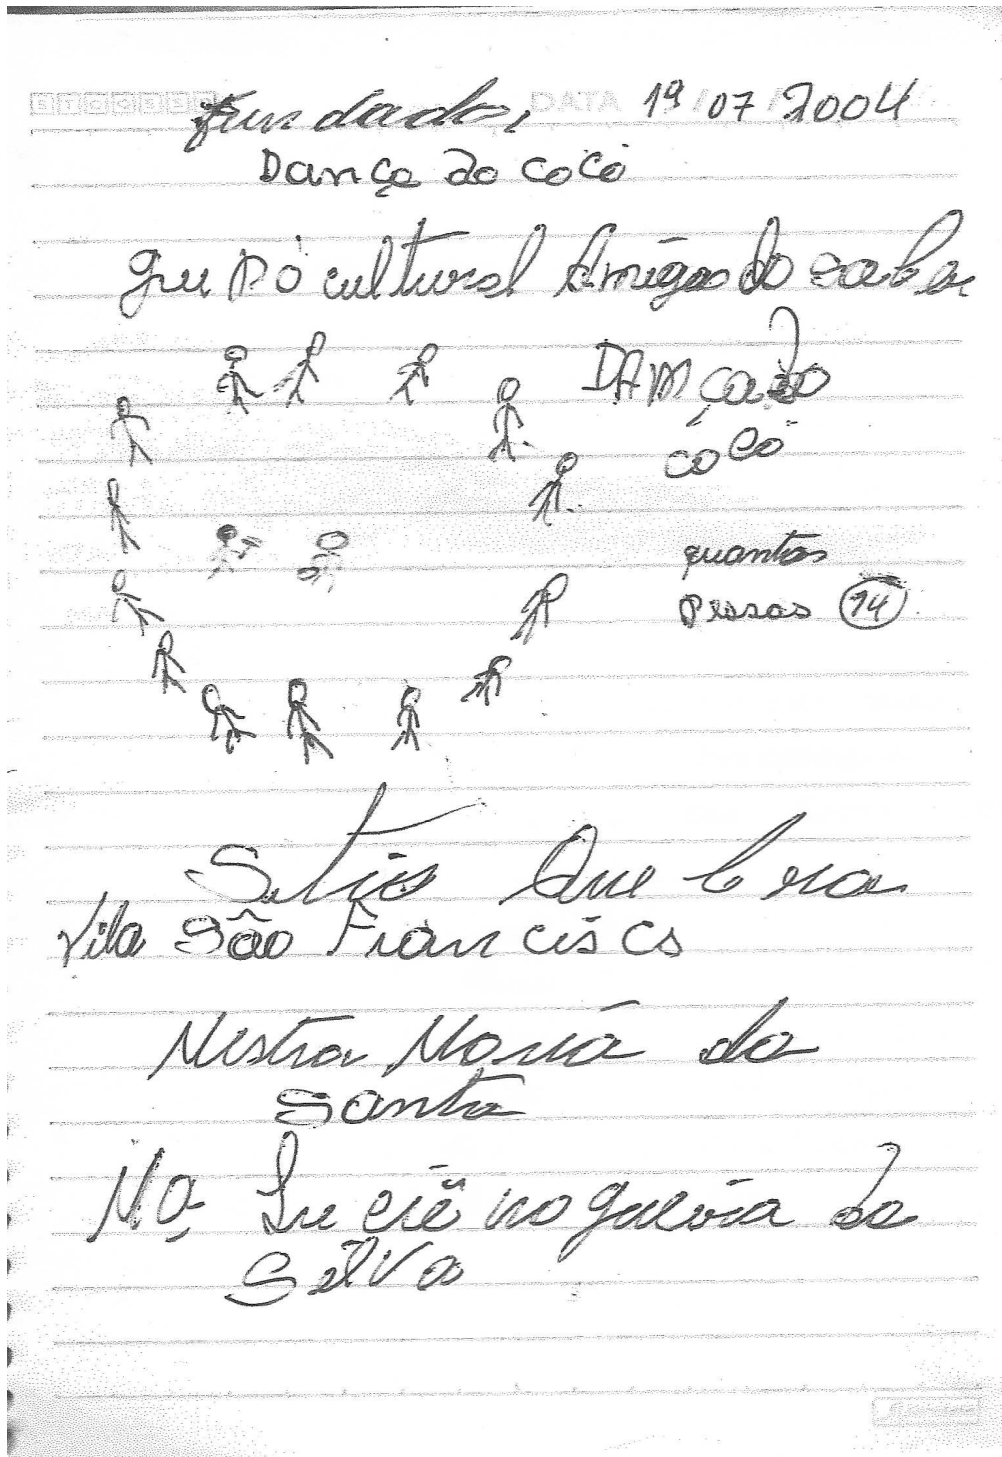 STQQSSD DATA / /
fundado, 19 07 2004
Dança do coco
grupo cultural Amigos do saber
DAMça do
coco
quantas
pessoas 14
Sitio Quebra
Vila São Francisco
Mestra Maria da
Santa
Mª Luciê nogueira da
Silva